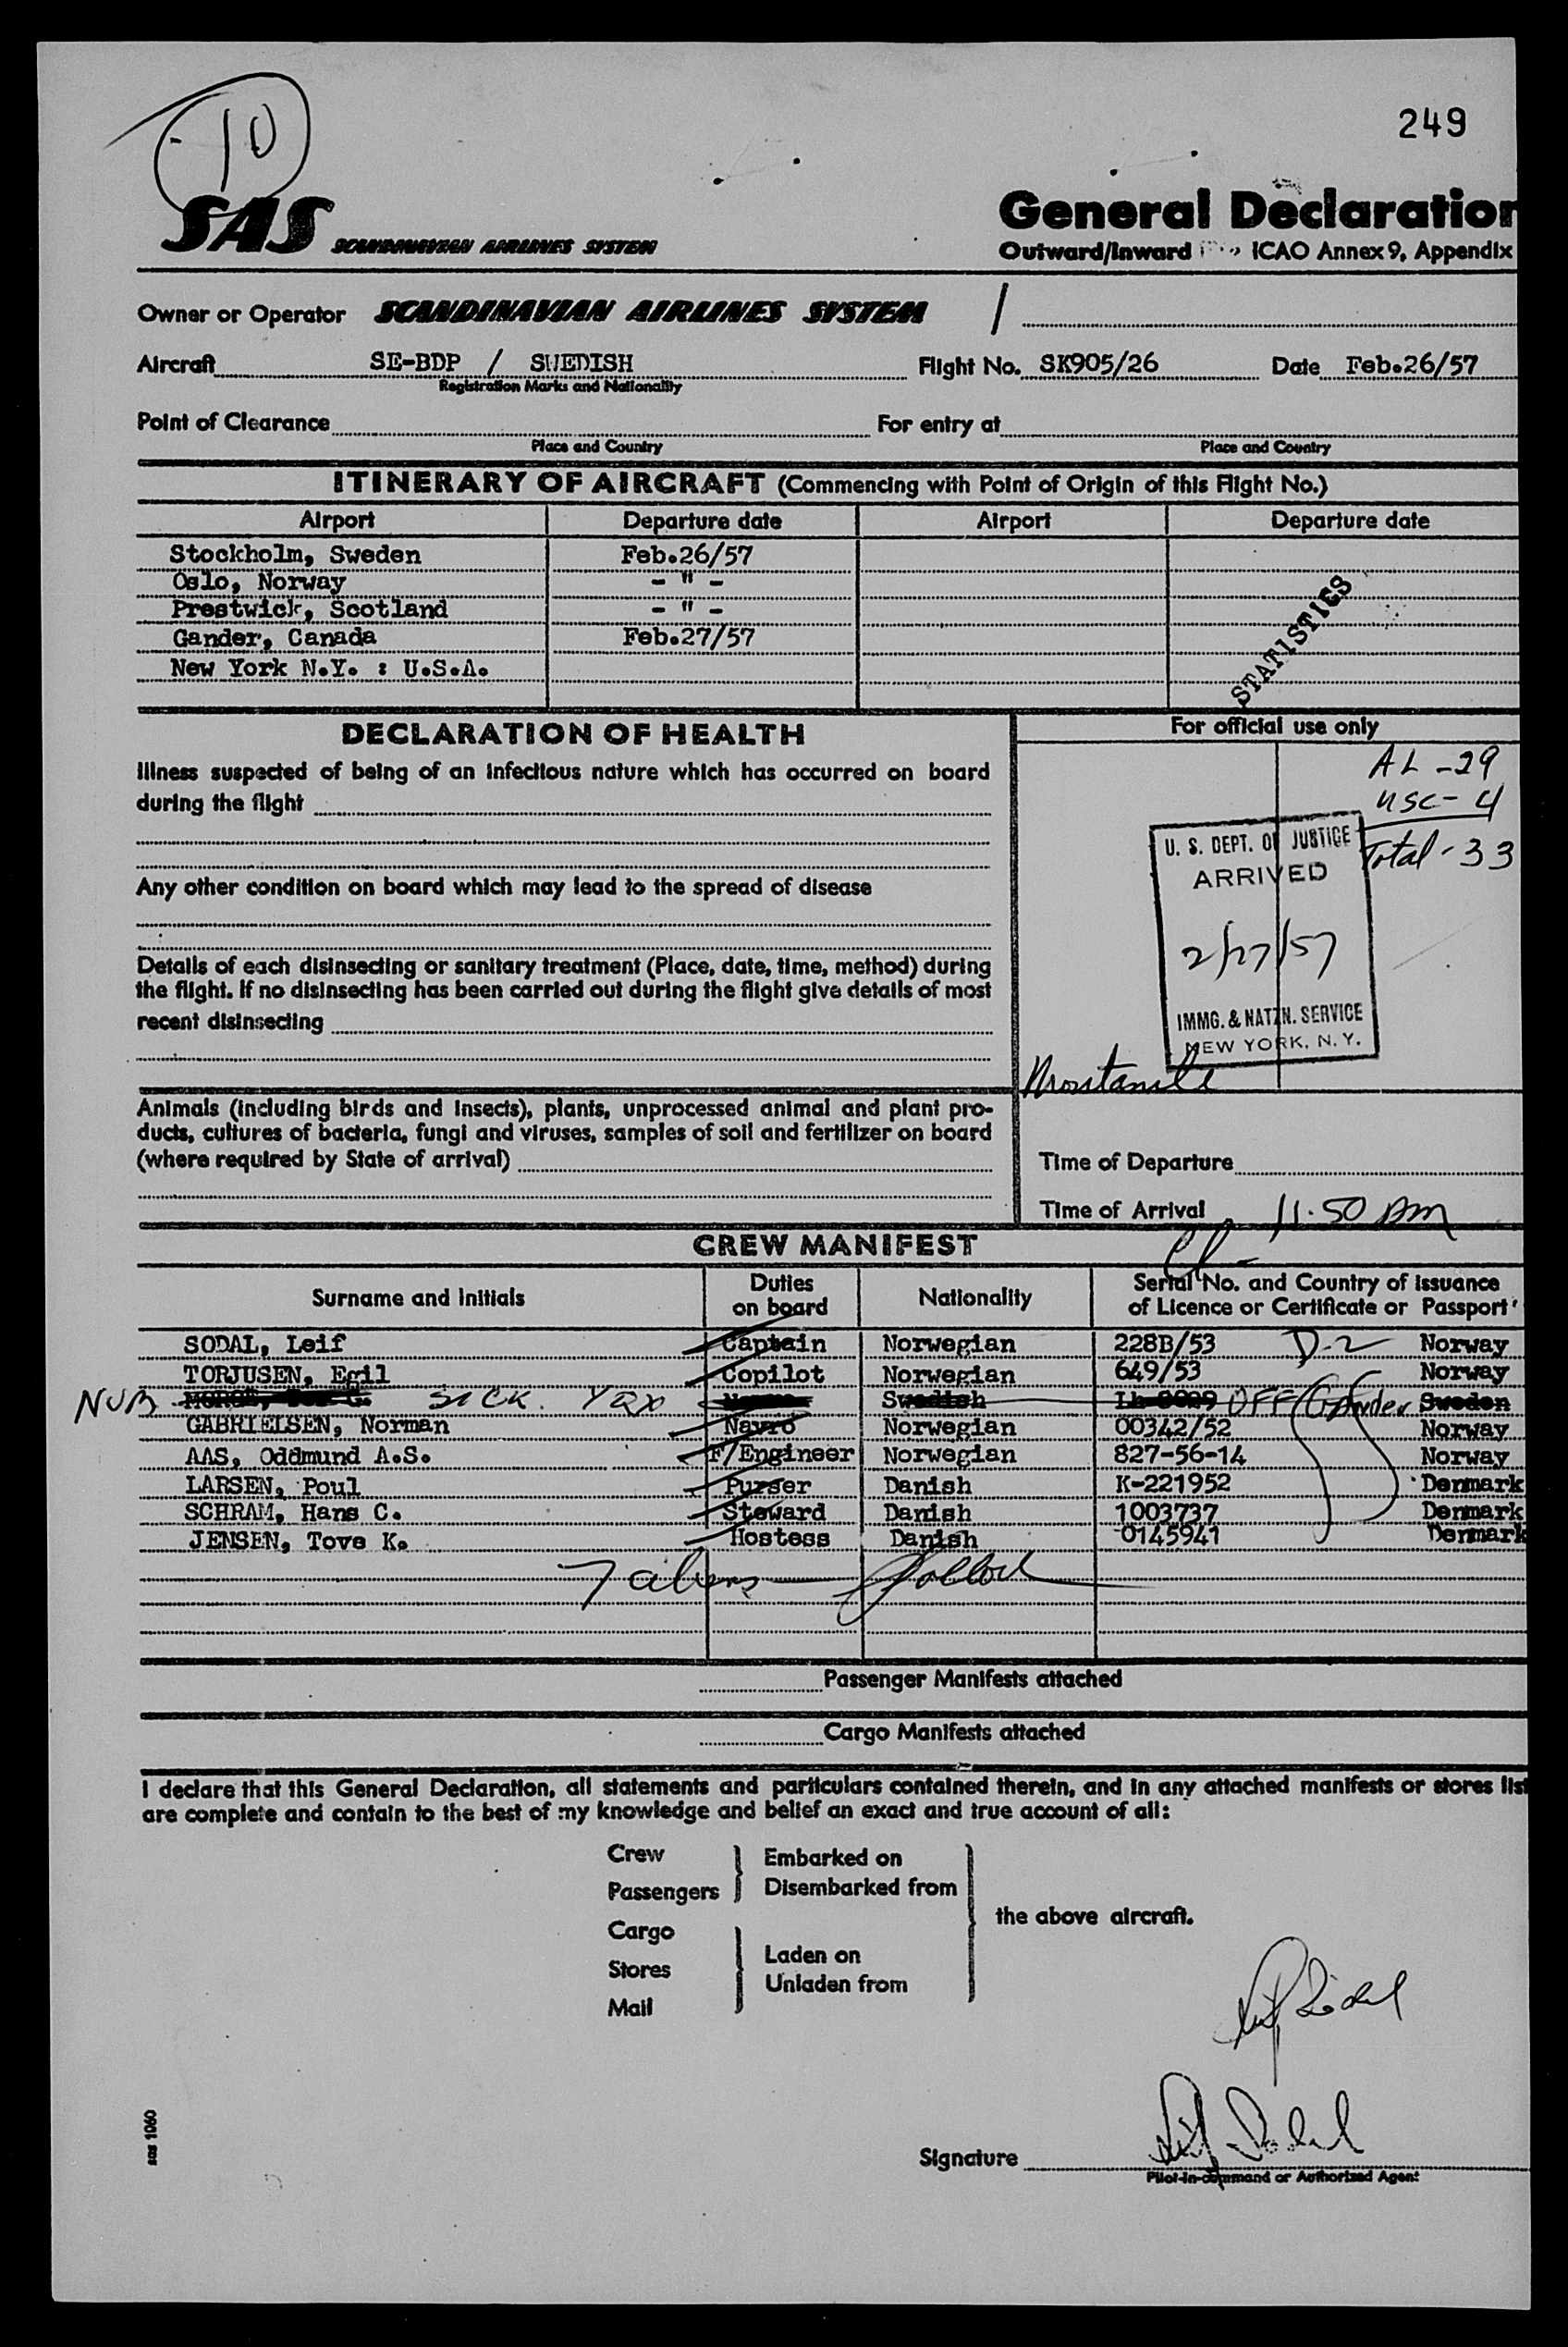 -10
249
SAS SCANDINAVIAN AIRLINES SYSTEM
General Declaration
Outward/Inward ICAO Annex 9, Appendix
Owner or Operator SCANDINAVIAN AIRLINES SYSTEM /
Aircraft SE-BDP / SWEDISH Flight No. SK905/26 Date Feb.26/57
Registration Marks and Nationality
Point of Clearance For entry at
Place and Country Place and Country
ITINERARY OF AIRCRAFT (Commencing with Point of Origin of this Flight No.)
Airport Departure date Airport Departure date
Stockholm, Sweden Feb.26/57
Oslo, Norway - " -
Prestwick, Scotland - " -
Gander, Canada Feb.27/57
New York N.Y. : U.S.A.
STATISTICS
DECLARATION OF HEALTH
For official use only
Illness suspected of being of an infectious nature which has occurred on board
during the flight
AL - 29
USC - 4
Total - 33
U. S. DEPT. OF JUSTICE
ARRIVED
2/27/57
IMMG. & NATZN. SERVICE
NEW YORK, N. Y.
Any other condition on board which may lead to the spread of disease
Details of each disinsecting or sanitary treatment (Place, date, time, method) during
the flight. If no disinsecting has been carried out during the flight give details of most
recent disinsecting
Animals (including birds and insects), plants, unprocessed animal and plant pro-
ducts, cultures of bacteria, fungi and viruses, samples of soil and fertilizer on board
(where required by State of arrival)
Time of Departure
Time of Arrival 11.50 AM
CREW MANIFEST
Surname and Initials Duties on board Nationality Serial No. and Country of Issuance of Licence or Certificate or Passport
SODAL, Leif Captain Norwegian 228B/53 D-2 Norway
TORJUSEN, Egil Copilot Norwegian 649/53 Norway
SICK. YQX Swedish OFF Gander Sweden
GABRIELSEN, Norman Navro Norwegian 00342/52 Norway
AAS, Oddmund A.S. F/Engineer Norwegian 827-56-14 Norway
LARSEN, Poul Purser Danish K-221952 Denmark
SCHRAM, Hans C. Steward Danish 1003737 Denmark
JENSEN, Tove K. Hostess Danish 0145941 Denmark
7 aliens
Passenger Manifests attached
Cargo Manifests attached
I declare that this General Declaration, all statements and particulars contained therein, and in any attached manifests or stores list
are complete and contain to the best of my knowledge and belief an exact and true account of all:
Crew
Passengers
Embarked on
Disembarked from
the above aircraft.
Cargo
Stores
Mail
Laden on
Unladen from
Leif Sodal
Signature Leif Sodal
Pilot-in-command or Authorized Agent
sas 1060